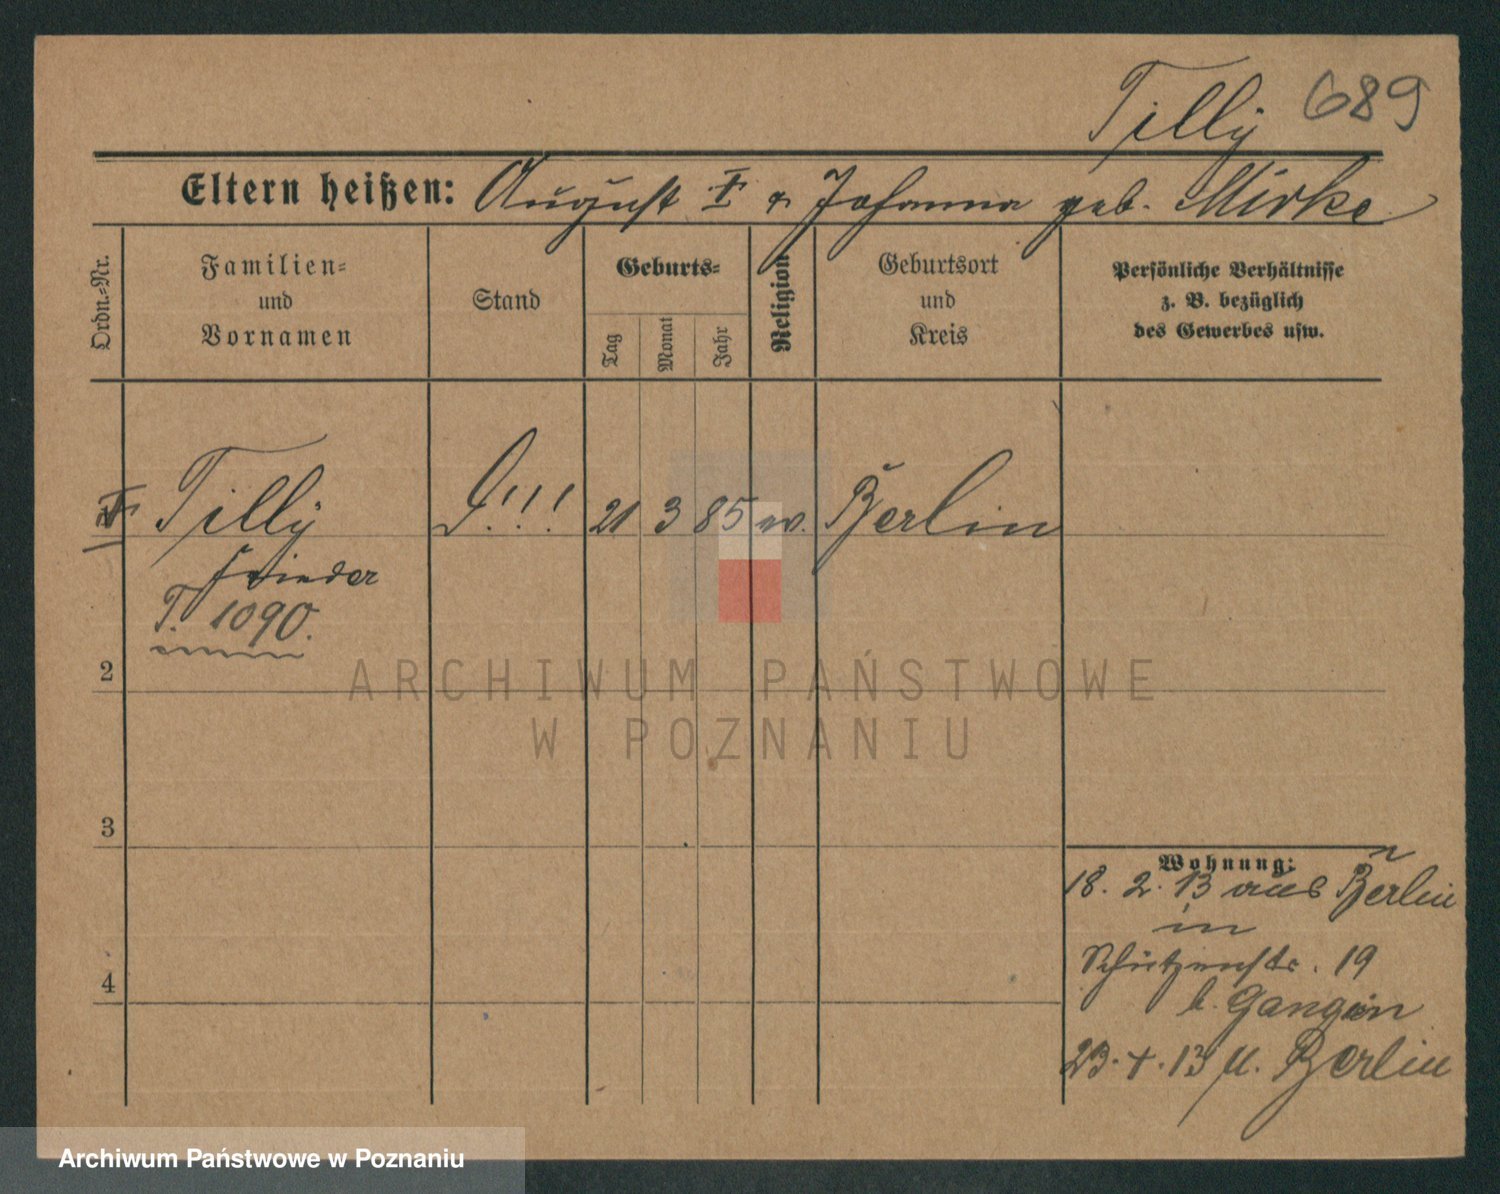 Tilly 689
Eltern heißen: August T & Johanna geb. Mirke
Ordn.-Nr.
Familien-
und
Vornamen
Stand
Geburts-
Tag
Monat
Jahr
Religion
Geburtsort
und
Kreis
Persönliche Verhältnisse
z. B. bezüglich
des Gewerbes usw.
Tilly
D!!! 21 3 85 ev. Berlin
T. 1090.
2
3
4
Wohnung:
18. 2. 13 aus Berlin
in
Schützenstr. 19
b.
13 n. Berlin
ARCHIWUM PAŃSTWOWE
W POZNANIU
Archiwum Państwowe w Poznaniu